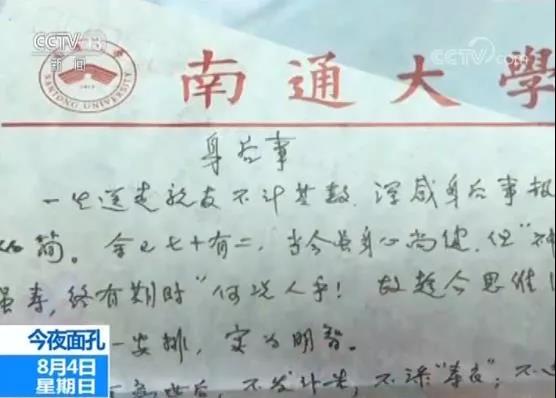 CCTV 13
新闻
CCTV.com
NANTONG UNIVERSITY
南通大學
身后事
一生送走亲友不计其数，深感身后事极
简。余已七十有二，当今虽身心尚健，但“神
虽寿，终有期时”何况人乎！故趁今思维
一安排，实为明智。
去世后，不发讣告，不添“寿衣”；不
今夜面孔
8月4日
星期日